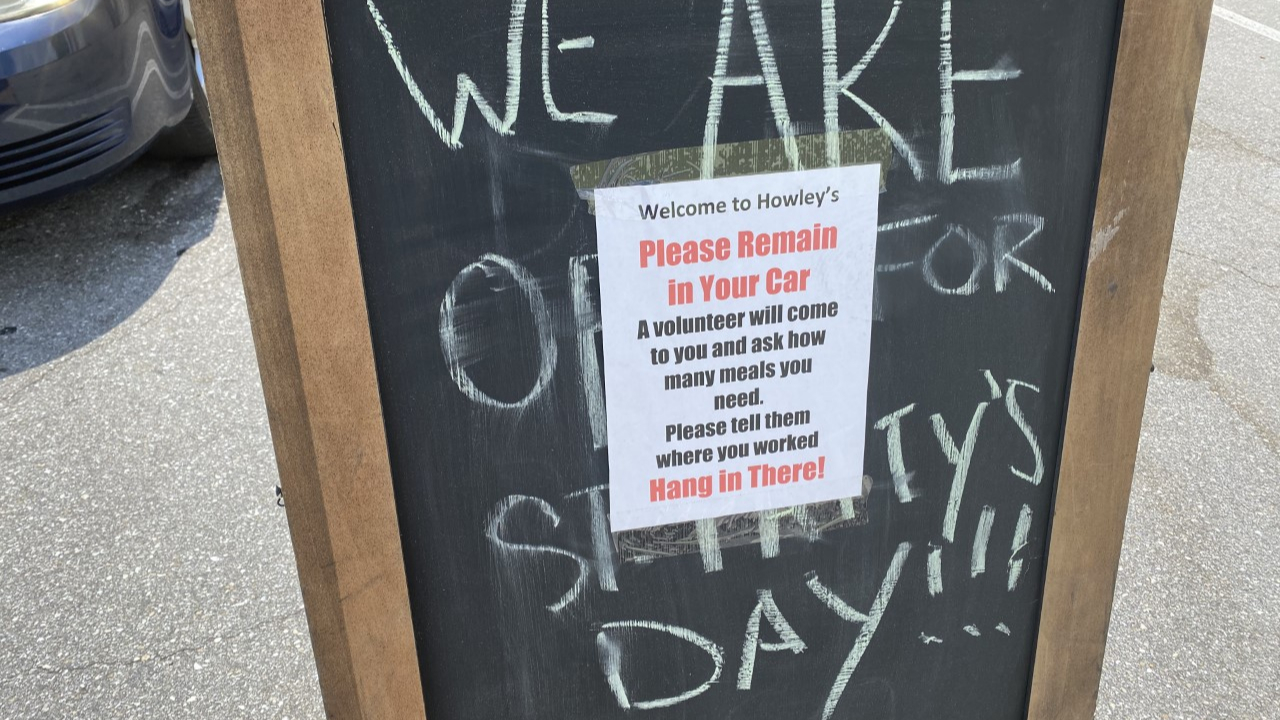 WE ARE
Welcome to Howley's
Please Remain
in Your Car
A volunteer will come
to you and ask how
many meals you
need.
Please tell them
where you worked
Hang in There!
FOR
DAY!!!